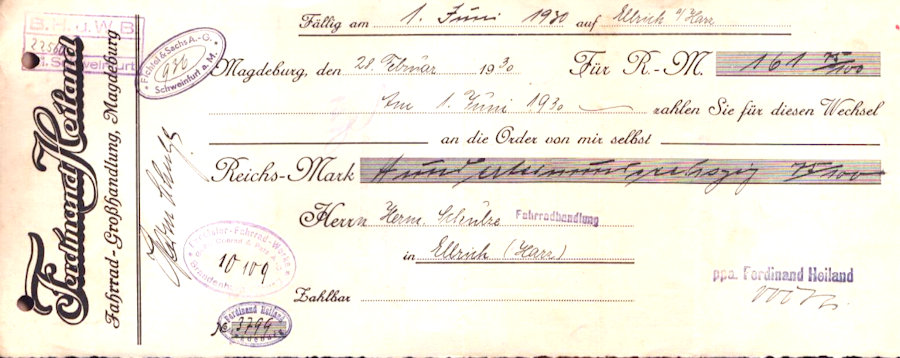 Fällig am 1. Juni 1930 auf Ellrich a/Harz
B.H.u.W.B.
22560
Fil. Schweinfurt
Fichtel & Sachs A.-G.
936
Schweinfurt a. M.
Magdeburg, den 28. Februar 1930 Für R.-M. 161 /100
Am 1. Juni 1930 zahlen Sie für diesen Wechsel
an die Order von mir selbst
Reichs-Mark Hunderteinundsechzig /100
Herrn Herm. Schulze Fahrradhandlung
in Ellrich (Harz)
Zahlbar
ppa. Ferdinand Heiland
Ferdinand Heiland
Fahrrad-Großhandlung, Magdeburg
Herm. Schulze
Fahrrad-Werke
10109
Brandenburg
Ferdinand Heiland
№ 3799
Magdeburg